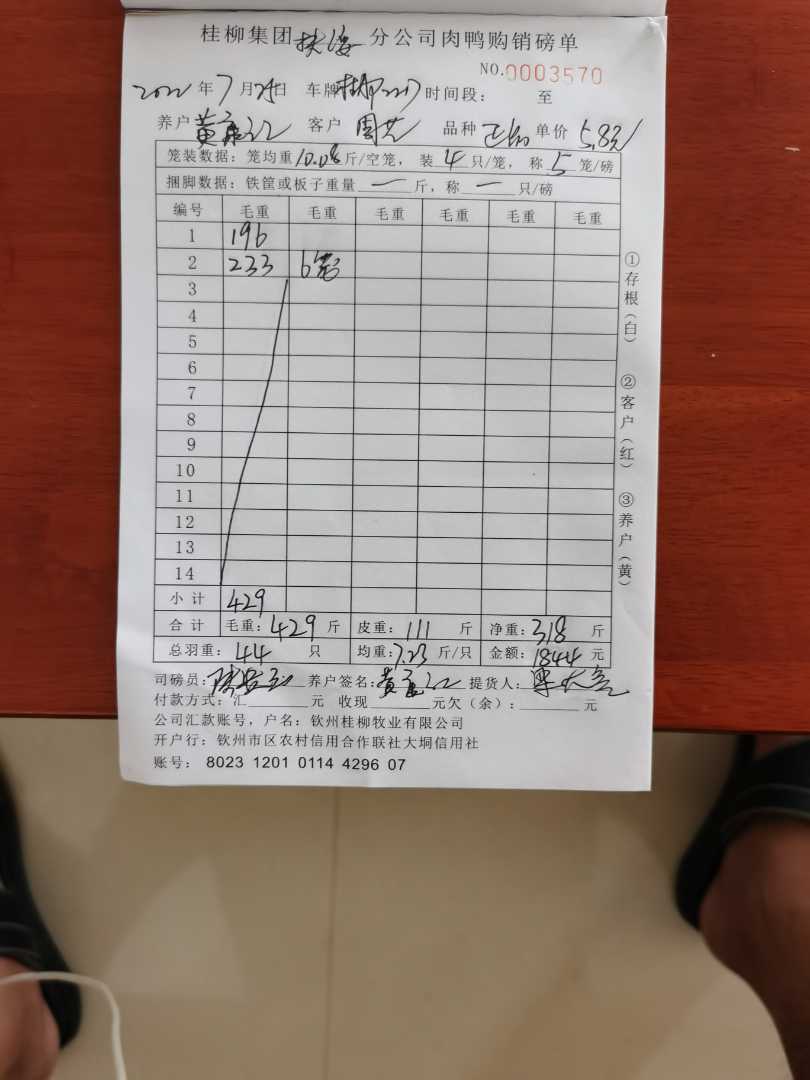 桂柳集团 分公司肉鸭购销磅单
NO.0003570
2022年7月25日 车牌 时间段: 至
养户 黄 客户 周 品种 单价 5.8元
笼装数据:笼均重10.08斤/空笼,装4只/笼,称5笼/磅
捆脚数据:铁筐或板子重量一斤,称一只/磅
编号 毛重 毛重 毛重 毛重 毛重 毛重
1 196
2 233 6笼
3
4
5
6
7
8
9
10
11
12
13
14
小计 429
合计 毛重:429斤 皮重:111斤 净重:318斤
总羽重:44只 均重:7.23斤/只 金额:1844元
司磅员: 养户签名:黄 提货人:
付款方式:汇______元 收现______元欠(余):______元
公司汇款账号,户名:钦州桂柳牧业有限公司
开户行:钦州市区农村信用合作联社大垌信用社
账号: 8023 1201 0114 4296 07
①存根(白)
②客户(红)
③养户(黄)